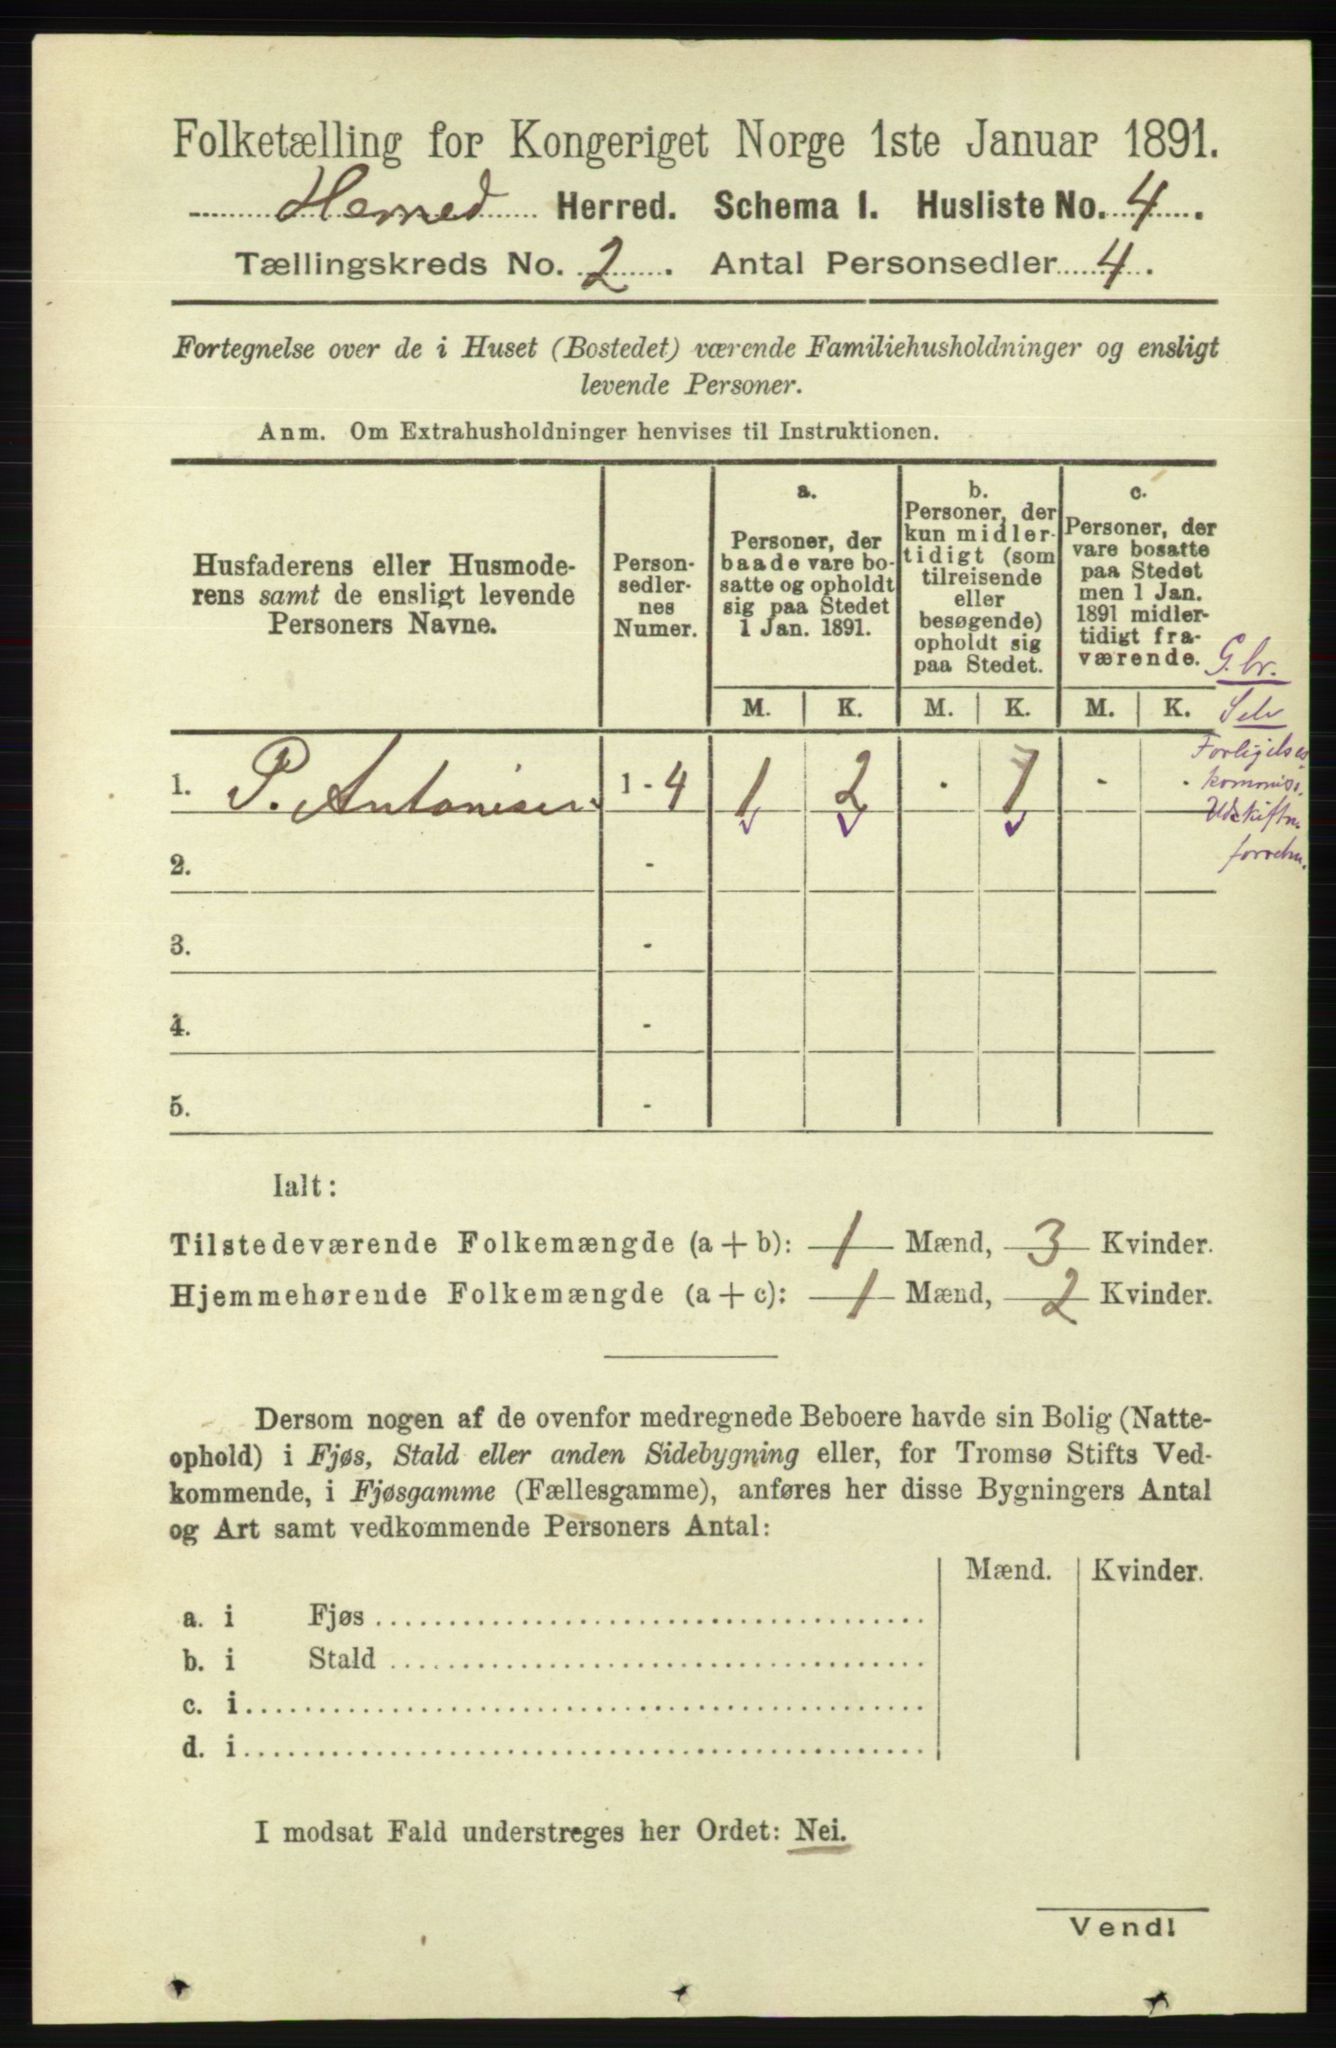 Folketælling for Kongeriget Norge 1ste Januar 1891.
Hemned Herred. Schema 1. Husliste No. 4.
Tællingskreds No. 2. Antal Personsedler 4.
Fortegnelse over de i Huset (Bostedet) værende Familiehusholdninger og ensligt
levende Personer.
Anm. Om Extrahusholdninger henvises til Instruktionen.
Husfaderens eller Husmode-
rens samt de ensligt levende
Personers Navne.
Person-
sedler-
nes
Numer.
a.
Personer, der
baade vare bo-
satte og opholdt
sig paa Stedet
1 Jan. 1891.
b.
Personer, der
kun midler-
tidigt (som
tilreisende
eller
besøgende)
opholdt sig
paa Stedet.
c.
Personer, der
vare bosatte
paa Stedet
men 1 Jan.
1891 midler-
tidigt fra-
værende.
M. K. M. K. M. K.
G.br.
Selv
Forligelses
kommiss.
Udskiftn.
forretn.
1. P. Antonisen. 1 - 4 1 2 · 1 - ·
2. -
3. -
4. -
5. -
Ialt:
Tilstedeværende Folkemængde (a + b): 1 Mænd, 3 Kvinder.
Hjemmehørende Folkemængde (a + c): 1 Mænd, 2 Kvinder.
Dersom nogen af de ovenfor medregnede Beboere havde sin Bolig (Natte-
ophold) i Fjøs, Stald eller anden Sidebygning eller, for Tromsø Stifts Ved-
kommende, i Fjøsgamme (Fællesgamme), anføres her disse Bygningers Antal
og Art samt vedkommende Personers Antal:
Mænd. Kvinder.
a. i Fjøs
b. i Stald
c. i
d. i
I modsat Fald understreges her Ordet: Nei.
Vend!